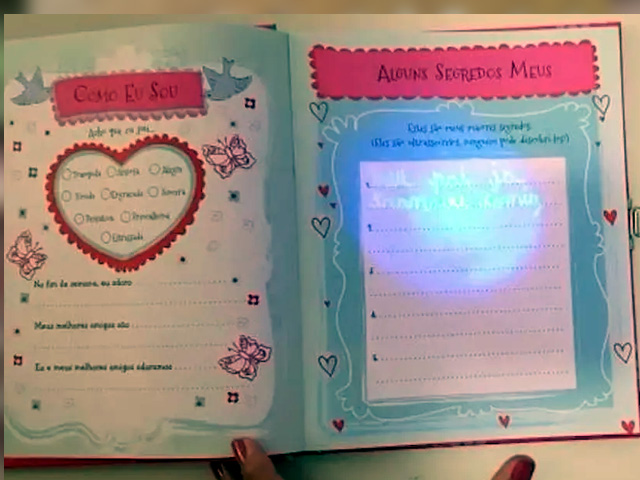 COMO EU SOU
Acho que eu sou...
Tranquila
Alegre
Tímida
Engraçada
Sincera
Estressada
No fim de semana, eu adoro
Meus melhores amigos são
Eu e meus melhores amigos adoramos
ALGUNS SEGREDOS MEUS
Estes são meus maiores segredos.
(Eles são ultrassecretos, ninguém pode descobri-los!)
1.
2.
3.
4.
5.